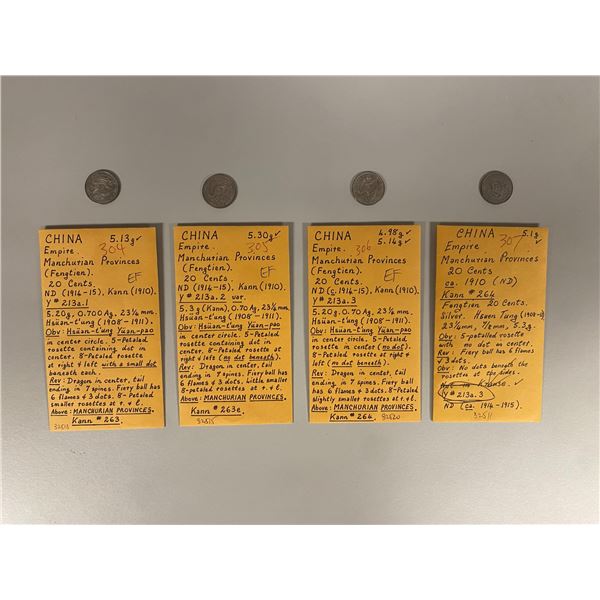 CHINA 5.13g ✓
Empire. 304
Manchurian Provinces
(Fengtien). EF
20 Cents.
ND (1914-15), Kann (1910).
Y# 213a.1
5.20g, 0.700 Ag, 23¼ mm.
Hsüan-t'ung (1908-1911).
Obv: Hsüan-t'ung Yüan-pao
in center circle. 5-Petaled
rosette containing dot in
center. 8-Petaled rosette
at right & left with a small dot
beneath each.
Rev: Dragon in center, tail
ending in 7 spines. Fiery ball has
6 flames & 3 dots. 8-Petaled
smaller rosettes at r. & l.
Above: MANCHURIAN PROVINCES.
Kann # 263.
CHINA 5.30g ✓
Empire. 305
Manchurian Provinces
(Fengtien). EF
20 Cents.
ND (1914-15), Kann (1910).
Y# 213a.2 var.
5.3g (Kann), 0.70 Ag, 23¼ mm.
Hsüan-t'ung (1908-1911).
Obv: Hsüan-t'ung Yüan-pao
in center circle. 5-Petaled
rosette containing dot in
center. 8-Petaled rosette at
right & left (no dot beneath).
Rev: Dragon in center, tail
ending in 7 spines. Fiery ball has
6 flames & 3 dots. Little smaller
8-petaled rosettes at r. & l.
Above: MANCHURIAN PROVINCES.
Kann # 263e.
CHINA 4.98g ✓
Empire. 306 5.14g ✓
Manchurian Provinces
(Fengtien). EF
20 Cents.
ND (c. 1914-15), Kann (1910).
Y# 213a.3
5.20g, 0.70 Ag, 23¼ mm.
Hsüan-t'ung (1908-1911).
Obv: Hsüan-t'ung Yüan-pao
in center circle. 5-Petaled
rosette in center (no dot).
8-Petaled rosette at right &
left (no dot beneath).
Rev: Dragon in center, tail
ending in 7 spines. Fiery ball has
6 flames & 3 dots. 8-Petaled
slightly smaller rosettes at r. & l.
Above: MANCHURIAN PROVINCES.
Kann # 264.
82520
CHINA 5.1g ✓
Empire 307
Manchurian Provinces
20 Cents
ca. 1910 (ND)
Kann # 264
Fengtien 20 Cents.
Silver. Hsuen Tung
23¼mm, 5.2g.
Obv: 5-petalled rosette
with no dot in center.
Rev: Fiery ball has 6 flames
& 3 dots.
Obv: No dots beneath the
rosettes at the sides.
Not in Krause. ✓
Y# 213a.3
ND (ca. 1914-1915).
82511